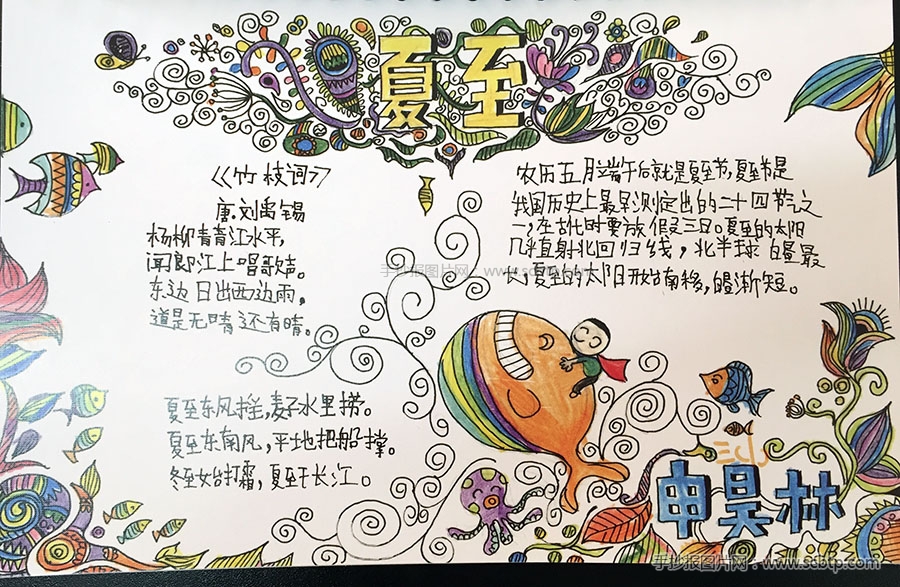 夏至
《竹枝词》
唐.刘禹锡
杨柳青青江水平,
闻郎江上唱歌声。
东边日出西边雨,
道是无晴还有晴。
农历五月端午后就是夏至节,夏至节是
我国历史上最早测定出的二十四节之
一,在古代时要放假三日。夏至的太阳
几乎直射北回归线,北半球白昼最
长,夏至的太阳开始南移,白昼渐短。
手抄报图片网:www.scbtp.com
夏至东风摇,麦子水里捞。
夏至东南风,平地把船撑。
冬至始打霜,夏至干长江。
申昊林
手抄报图片网:www.scbtp.com